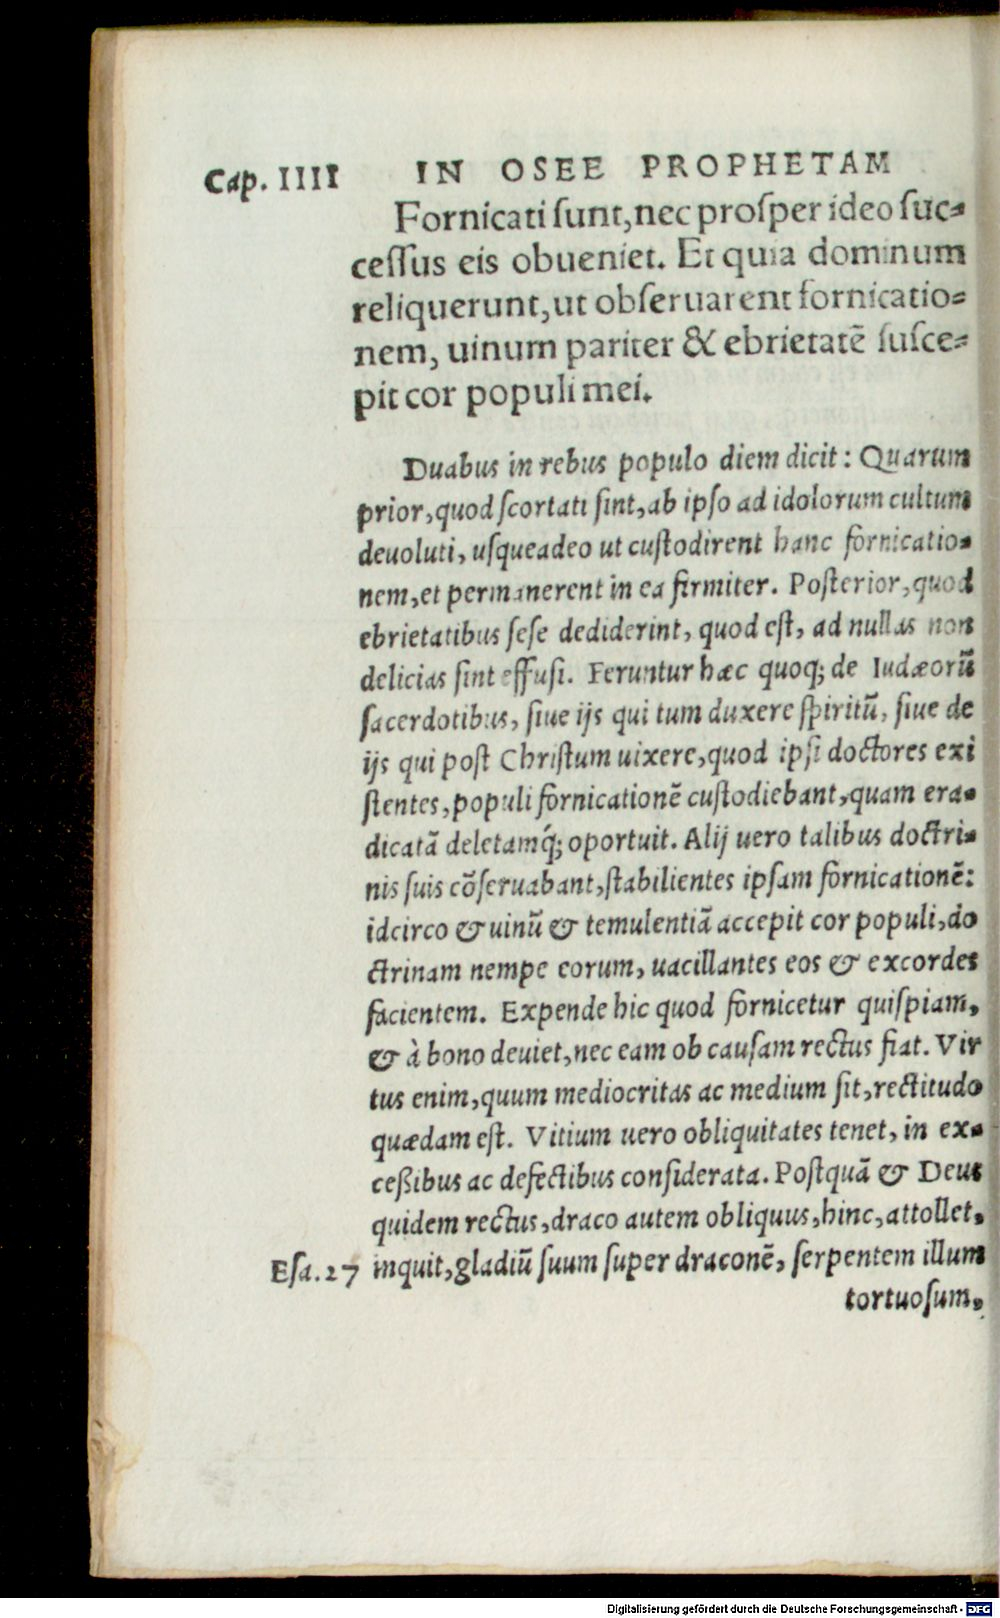 Cap. IIII IN OSEE PROPHETAM
Fornicati ſunt, nec proſper ideo ſuc⸗
ceſſus eis obueniet. Et quia dominum
reliquerunt, ut obſeruarent fornicatio⸗
nem, uinum pariter & ebrietatē ſuſce⸗
pit cor populi mei.
Duabus in rebus populo diem dicit: Quarum
prior, quod ſcortati ſint, ab ipſo ad idolorum cultum
deuoluti, uſqueadeo ut cuſtodirent hanc fornicatio⸗
nem, et permanerent in ea firmiter. Poſterior, quod
ebrietatibus ſeſe dediderint, quod eſt, ad nullas non
delicias ſint effuſi. Feruntur hæc quoq; de Iudæorū
ſacerdotibus, ſiue ijs qui tum duxere ſpiritū, ſiue de
ijs qui poſt Chriſtum uixere, quod ipſi doctores exi
ſtentes, populi fornicationē cuſtodiebant, quam era⸗
dicatā deletamq́; oportuit. Alij uero talibus doctri⸗
nis ſuis cōſeruabant, ſtabilientes ipſam fornicationē:
idcirco & uinū & temulentiā accepit cor populi, do
ctrinam nempe eorum, uacillantes eos & excordes
facientem. Expende hic quod fornicetur quiſpiam,
& à bono deuiet, nec eam ob cauſam rectus fiat. Vir
tus enim, quum mediocritas ac medium ſit, rectitudo
quædam eſt. Vitium uero obliquitates tenet, in ex⸗
ceßibus ac defectibus conſiderata. Poſtquā & Deus
quidem rectus, draco autem obliquus, hinc, attollet,
Eſa. 27 inquit, gladiū ſuum ſuper draconē, ſerpentem illum
tortuoſum,
Digitalisierung gefördert durch die Deutsche Forschungsgemeinschaft - DFG